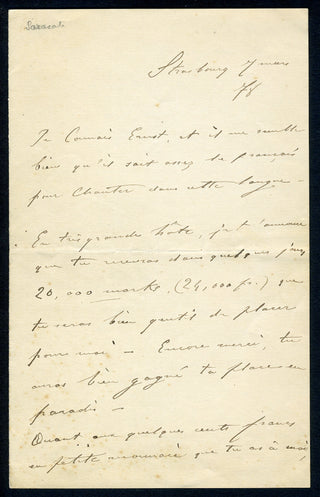 Sarasate
Strasbourg 7 mars
78
Je connais Ernst, et il me semble
bien qu'il sait assez le français
pour chanter dans cette langue -
En très grande hâte, je t'annonce
que tu recevras dans quelques jours
20,000 marks, (24,000 frs.) que
tu seras bien gentil de placer
pour moi - Encore merci, tu
auras bien gagné ta place en
paradis -
Quant aux quelques cents francs
en petite monnaie que tu as à moi,